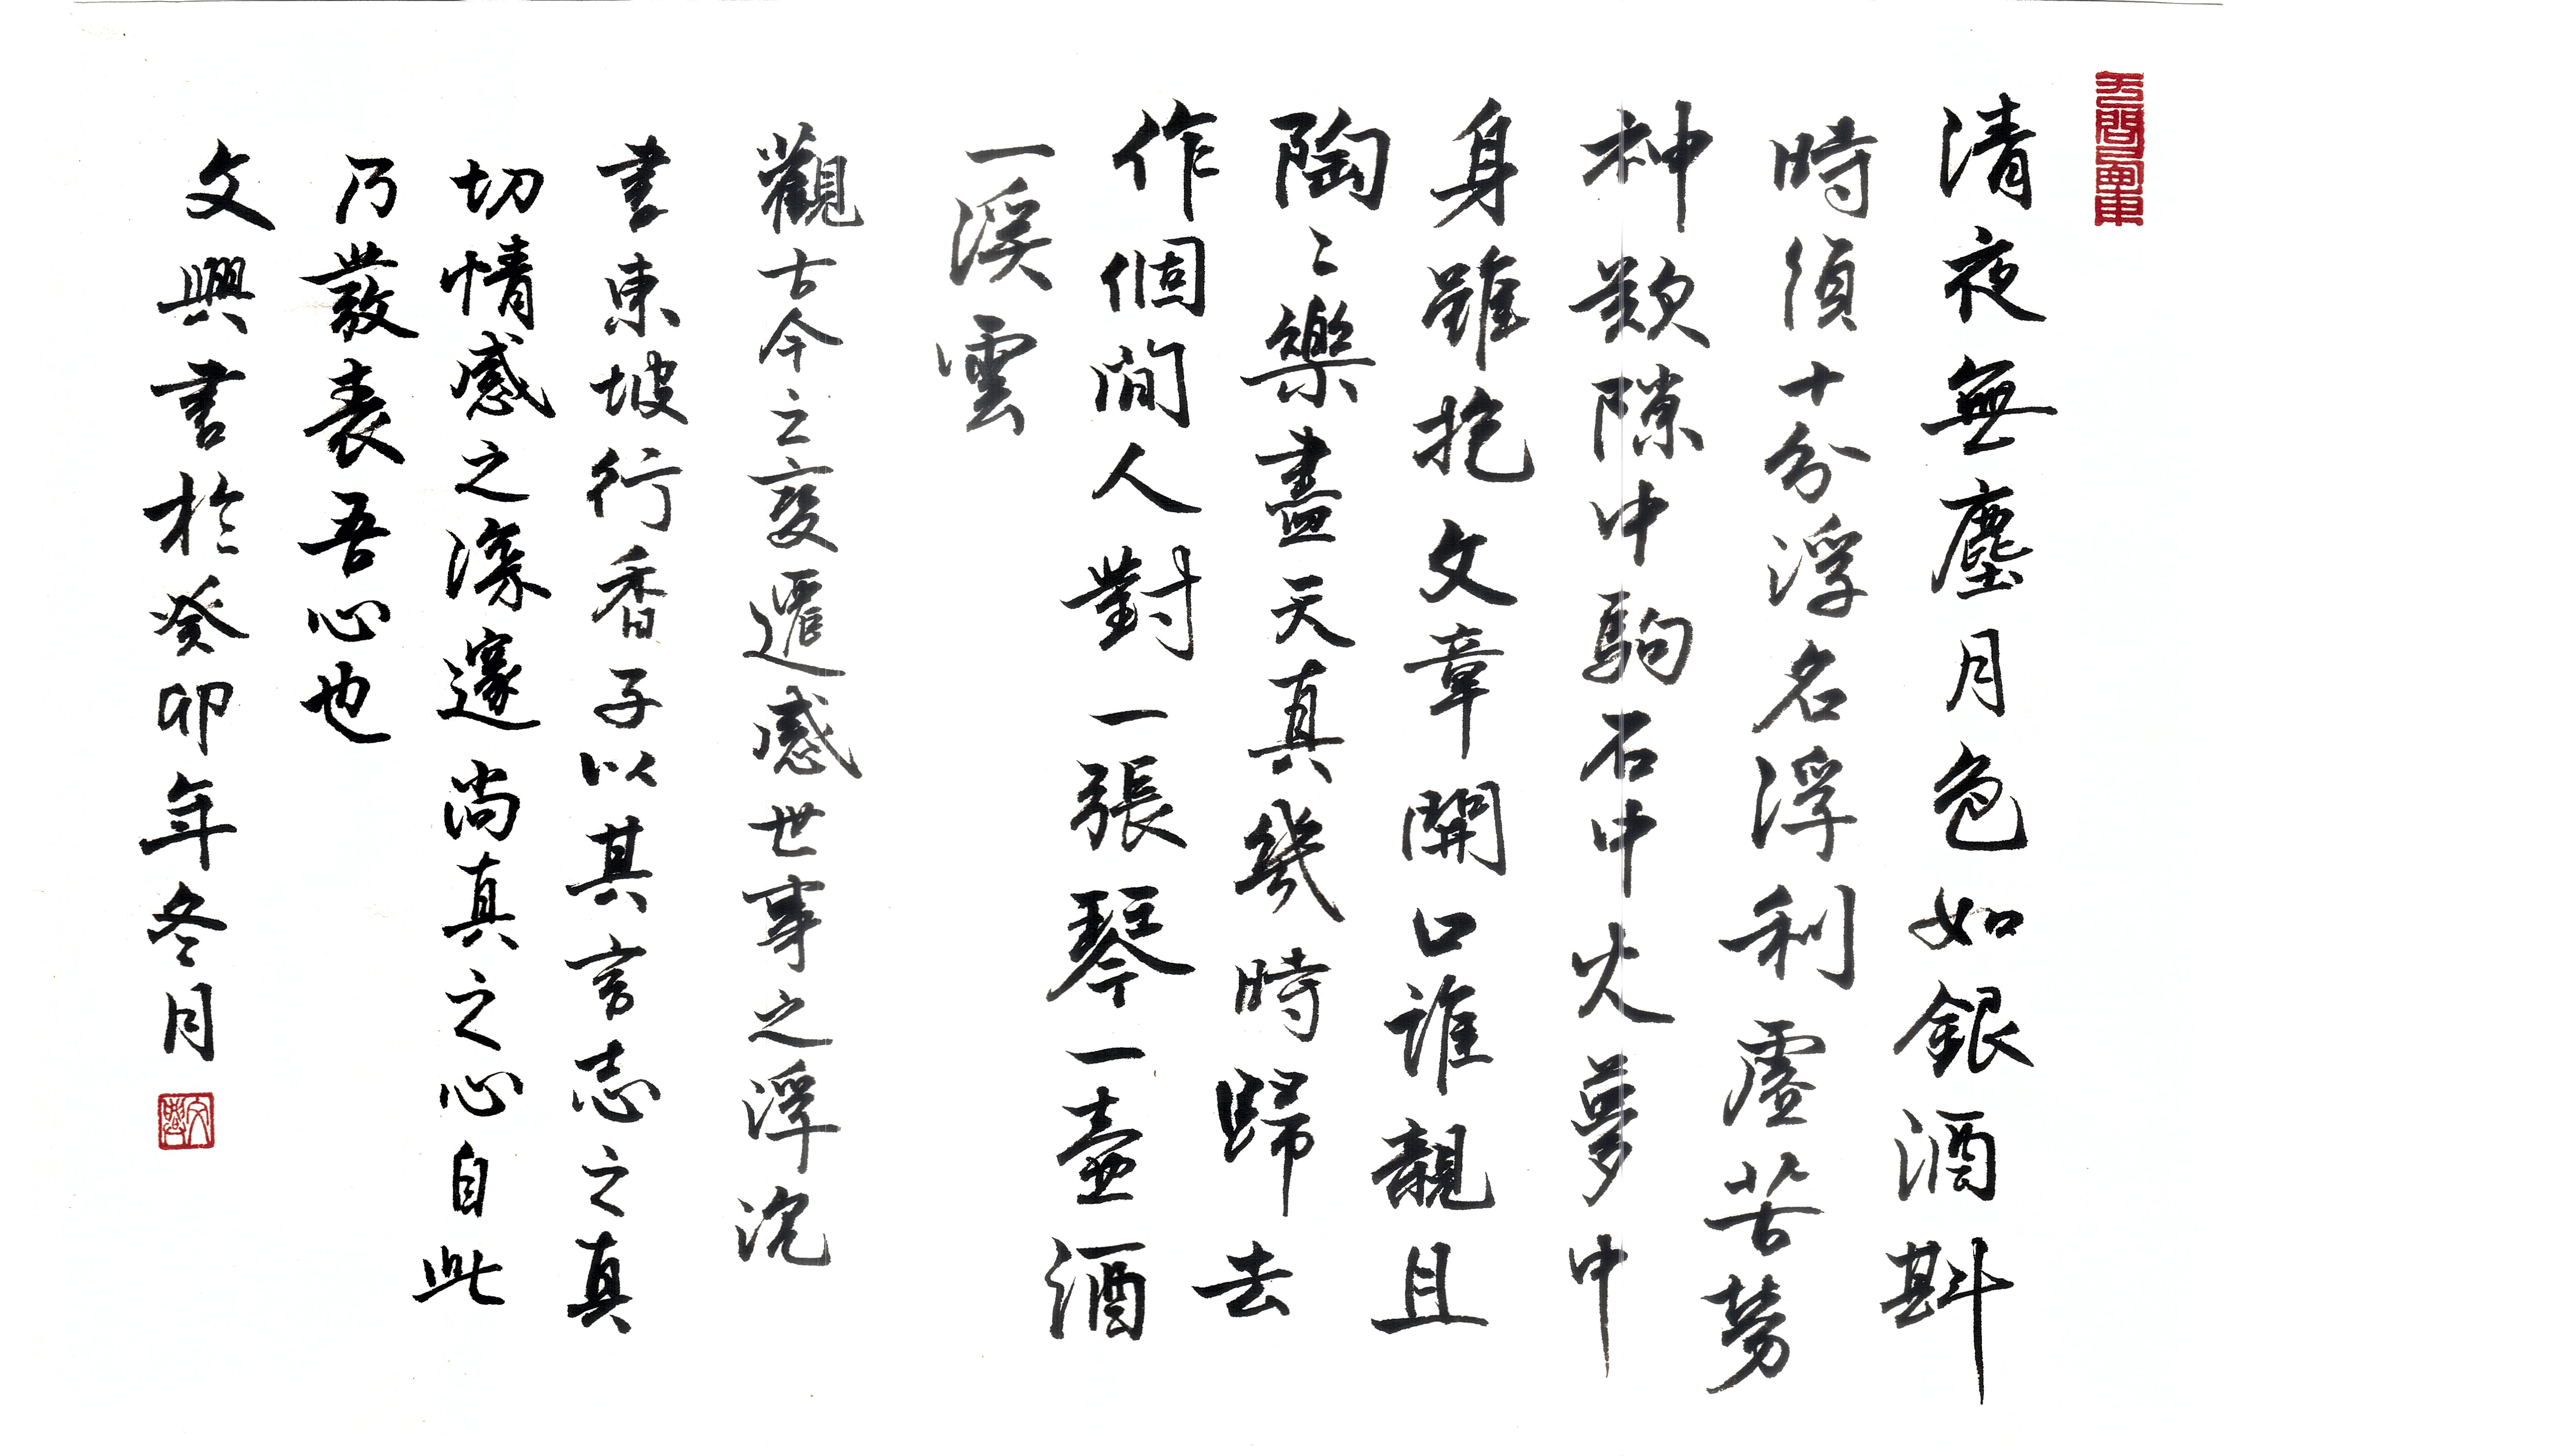 清夜無塵月色如銀酒斟
時須十分浮名浮利虛苦勞
神歎隙中駒石中火夢中
身雖抱文章開口誰親且
陶〻樂盡天真幾時歸去
作個閒人對一張琴一壺酒
一溪雲
觀古今之變遷感世事之浮沉
書東坡行香子以其言志之真
切情感之深邃尚真之心自此
乃發表吾心也
文興書於癸卯年冬月
文興